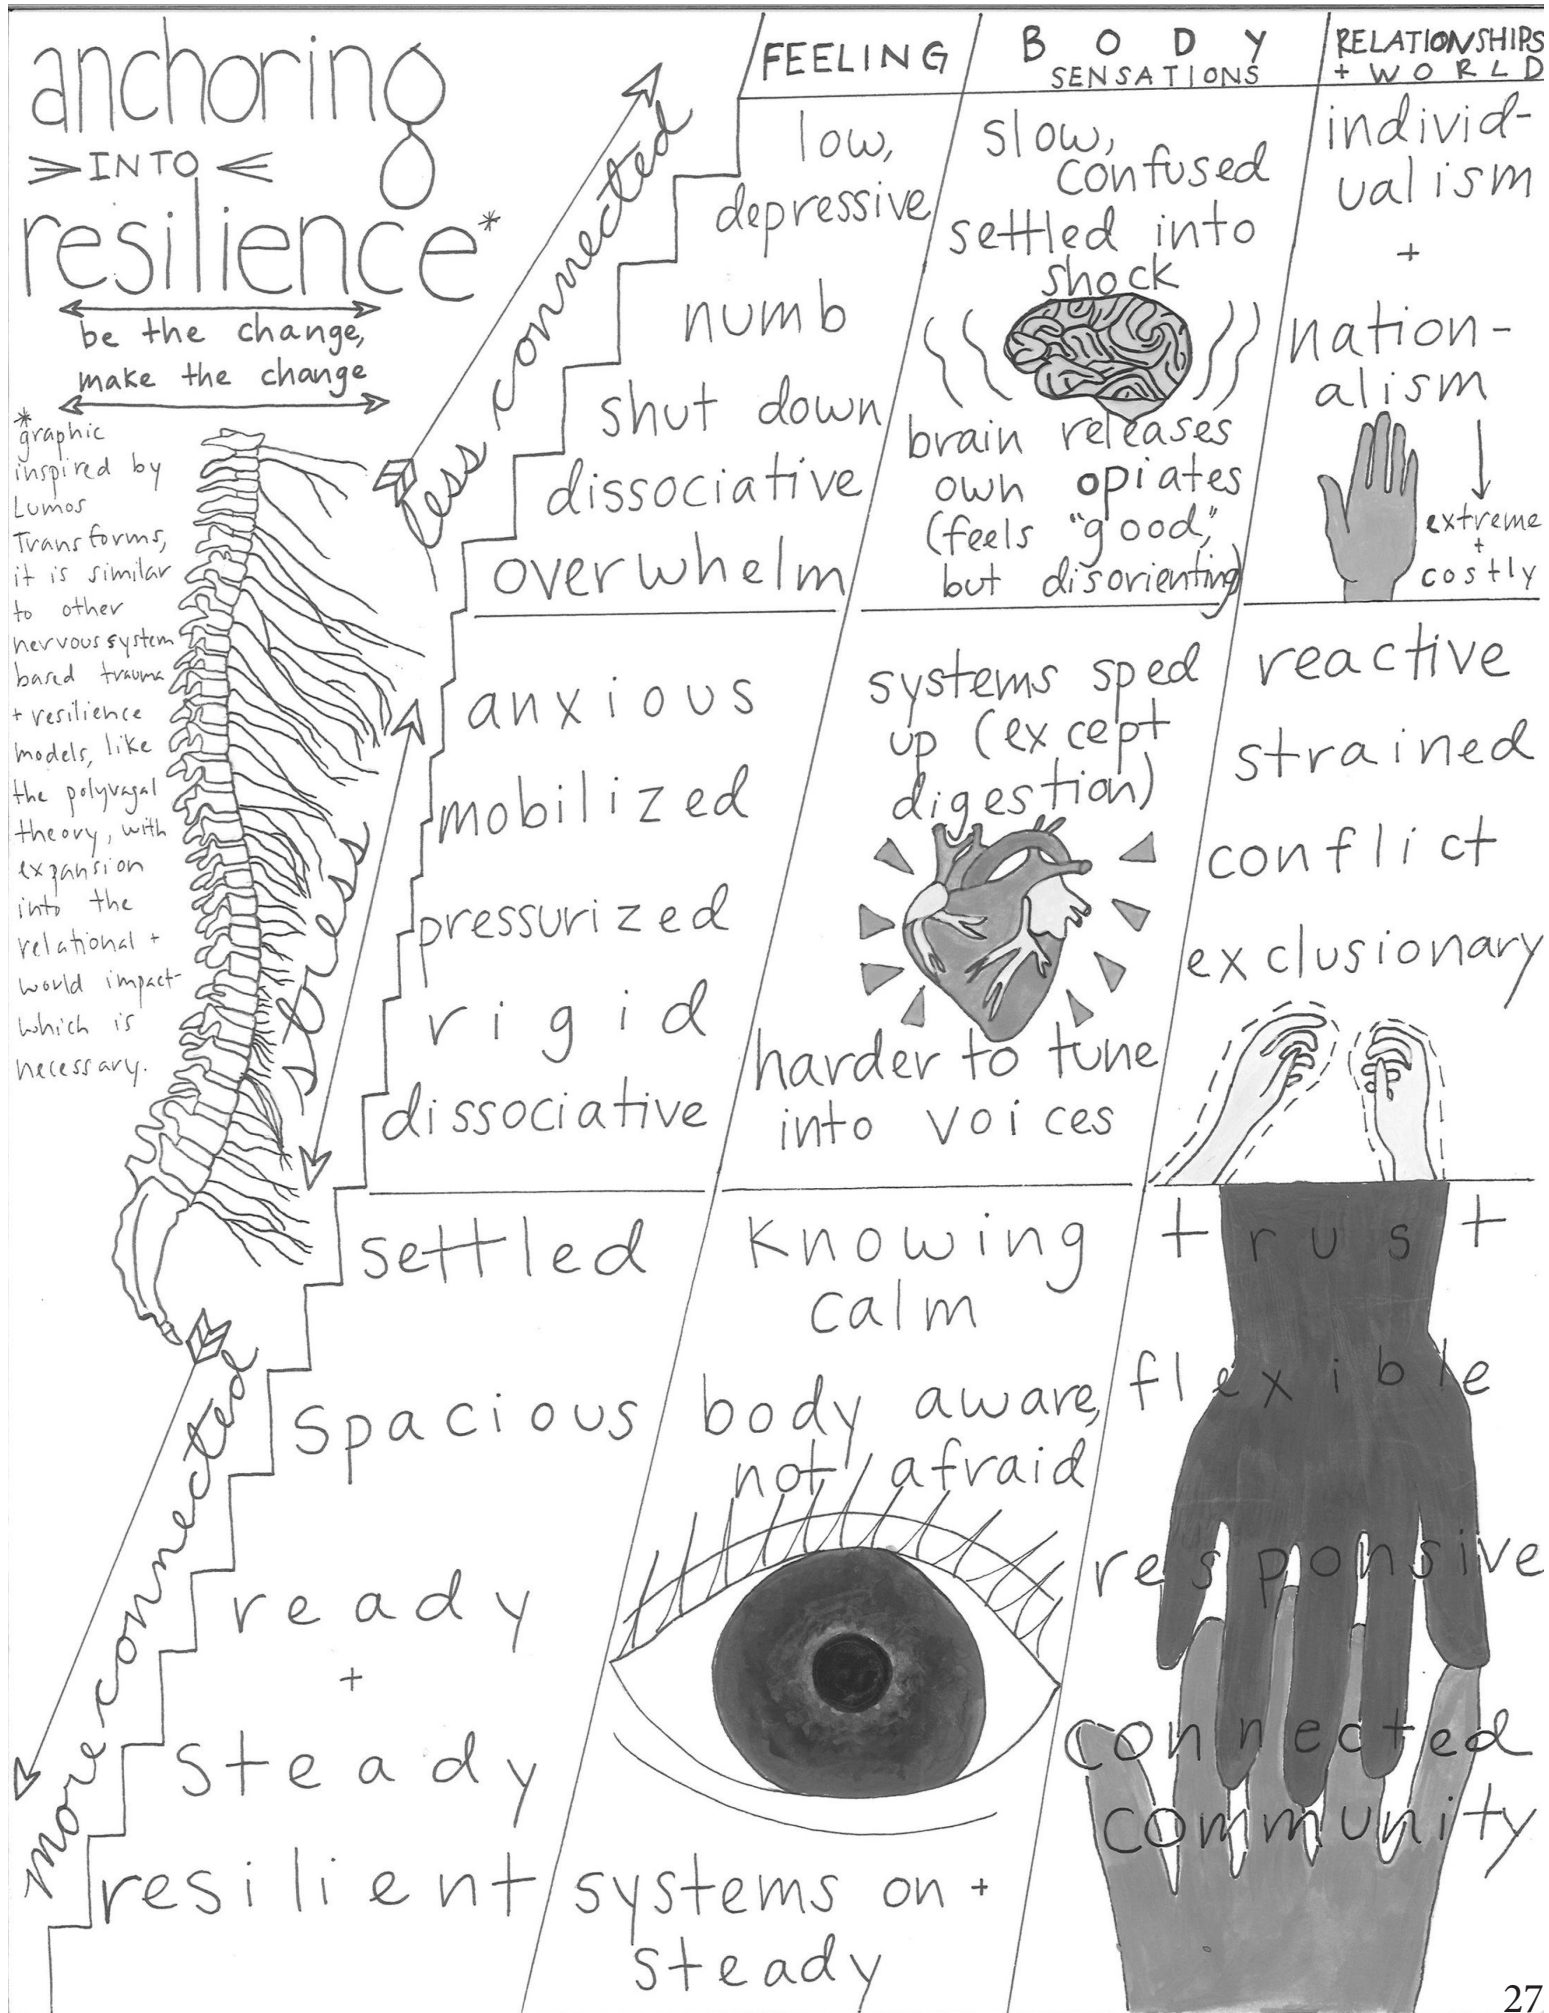 anchoring
INTO
resilience*
be the change,
make the change
*graphic
inspired by
Lumos
Transforms,
it is similar
to other
nervous system
based trauma
+ resilience
models, like
the polyvagal
theory, with
expansion
into the
relational +
world impact-
which is
necessary.
less connected
stress
more connected
FEELING
low,
depressive
numb
shut down
dissociative
overwhelm
anxious
mobilized
pressurized
rigid
dissociative
settled
spacious
ready
+
steady
resilient
BODY
SENSATIONS
slow,
confused
settled into
shock
brain releases
own opiates
(feels "good,"
but disorienting)
systems sped
up (except
digestion)
harder to tune
into voices
knowing
calm
body aware,
not afraid
systems on +
steady
RELATIONSHIPS
+ WORLD
individ-
ualism
+
nation-
alism
extreme
+
costly
reactive
strained
conflict
exclusionary
trust
flexible
responsive
connected
community
27